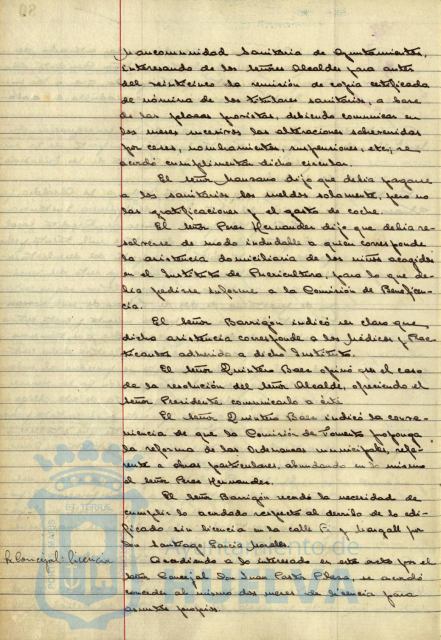 Mancomunidad Sanitaria de Ayuntamientos,
interesando de los señores Alcaldes para antes
del veinticinco la remisión de copia certificada
de nómina de los titulares sanitarios, a base
de las plazas provistas, debiendo comunicar en
los meses sucesivos las alteraciones sobrevenidas
por ceses, nombramientos, suspensiones, etc; se
acordó cumplimentar dicha circular.
El señor Manzano dijo que debía pagarse
a los sanitarios los sueldos solamente, pero no
las gratificaciones y el gasto de coche.
El señor Perez Hernandez dijo que debía re-
solverse de modo indudable a quien corresponde
la asistencia domiciliaria de los niños acogidos
en el Instituto de Puericultura, para lo que de-
bía pedirse informe a la Comisión de Beneficen-
cia.
El señor Barrigón indicó ser claro que
dicha asistencia corresponde a los Médicos y Prac-
ticantes adscritos a dicho Instituto.
El señor Quintero Baez opinó era el caso
de la resolución del señor Alcalde, ofreciendo el
señor Presidente comunicarlo a éste
El señor Quintero Baez indicó la conve-
niencia de que la Comisión de Fomento proponga
la reforma de las Ordenanzas municipales, refe-
rente a obras particulares, abundando en lo mismo
el señor Perez Hernandez.
El señor Barrigón recordó la necesidad de
cumplir lo acordado respecto al derribo de lo edi-
ficado sin licencia en la calle Pi y Margall por
Don Santiago Garcia Morales.
R. Concejal: licencia
Accediendo a lo interesado en este acto por el
señor Concejal Don Juan Pastor Plaza, se acordó
conceder al mismo dos meses de licencia para
asuntos propios.
Ayuntamiento de
HUELVA